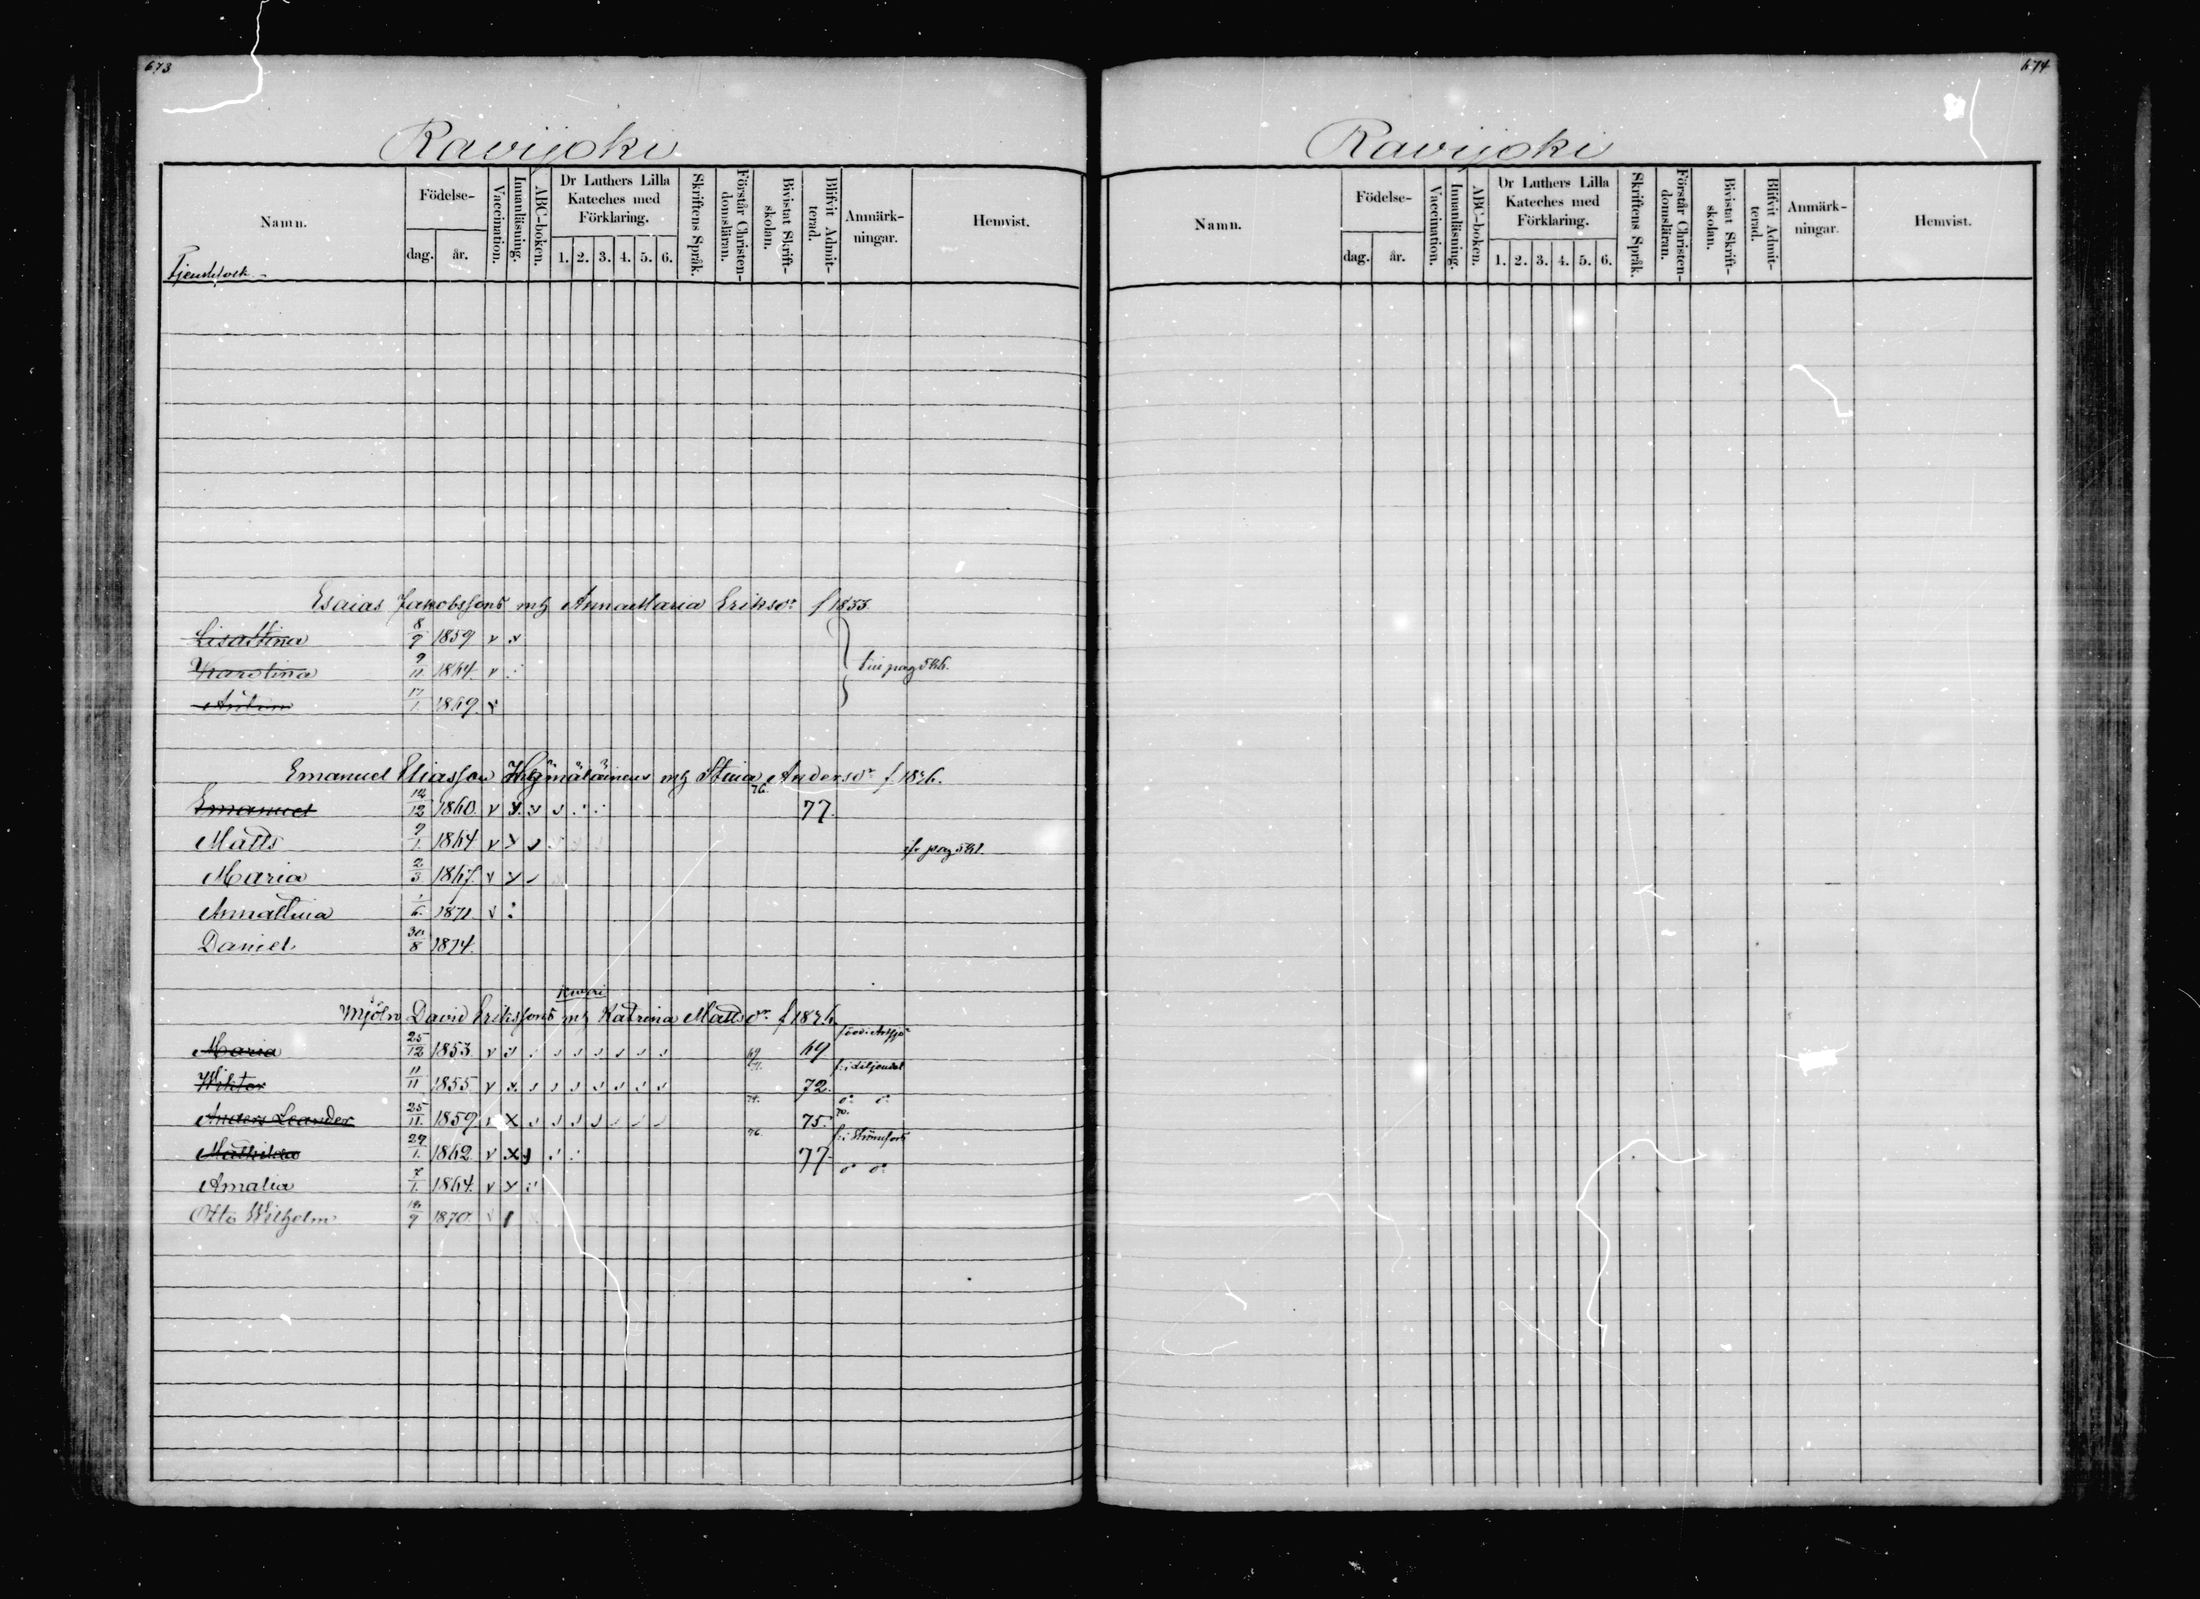 673
Ravijoki
Namn.
Födelse-
dag. år.
Vaccination.
Innanläsning.
ABC-boken.
Dr Luthers Lilla
Kateches med
Förklaring.
1. 2. 3. 4. 5. 6.
Skriftens Språk.
Förstår Christen-
domsläran.
Bivistat Skrift-
skolan.
Blifvit Admit-
terad.
Anmärk-
ningar.
Hemvist.
Esaias Jakobssons m Anna Maria Eriksdr f 1833.
Lisa Stina 8/9 1859 v v
Karolina 9/11 1864 v
17/1. 1869. v
Emanuel Eliasson m Stina Andersdr f. 1836.
Emanuel 14/12 1860. v v v 76. 77.
Matts 9/1. 1864 v v v
Maria 2/3 1867. v v
Anna Stina 1/6. 1871 v
Daniel 30/8 1874.
Mjöln David Erikssons m Katrina Mattsdr f 1826.
Maria 25/12 1853. v v 69 69
Wiktor 11/11 1855. v v 71. 72.
Anders Leander 25/11. 1859 v x 74. 75.
Mathilda 29/1. 1862. v x 76. 77.
Amalia 7/1. 1864. v v
Otto Wilhelm 18/9 1870. v
674
Ravijoki
Namn.
Födelse-
dag. år.
Vaccination.
Innanläsning.
ABC-boken.
Dr Luthers Lilla
Kateches med
Förklaring.
1. 2. 3. 4. 5. 6.
Skriftens Språk.
Förstår Christen-
domsläran.
Bivistat Skrift-
skolan.
Blifvit Admit-
terad.
Anmärk-
ningar.
Hemvist.